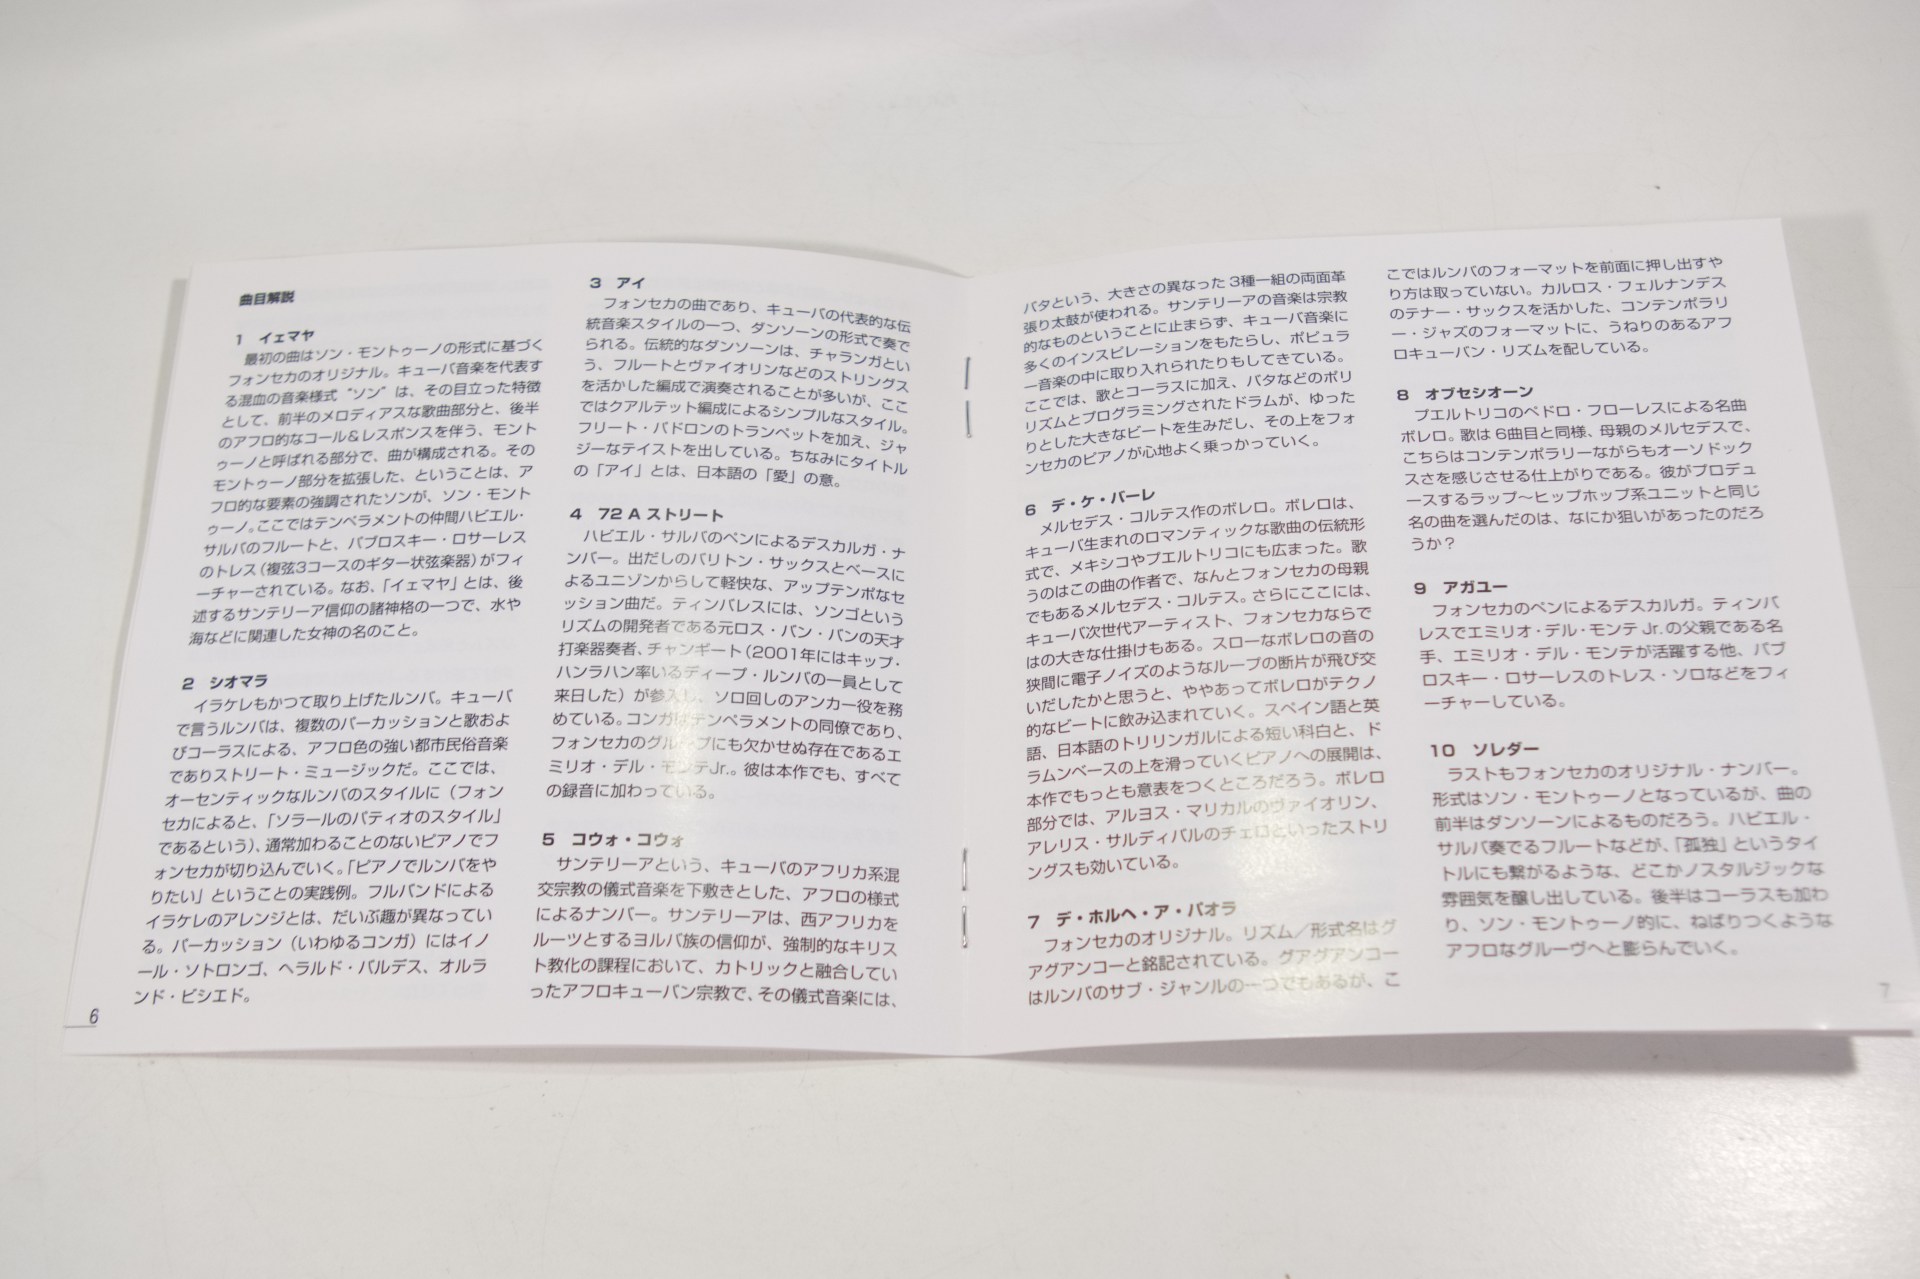 曲目解説
1 イェマヤ
最初の曲はソン・モントゥーノの形式に基づく
フォンセカのオリジナル。キューバ音楽を代表す
る混血の音楽様式“ソン”は、その目立った特徴
として、前半のメロディアスな歌曲部分と、後半
のアフロ的なコール＆レスポンスを伴う、モント
ゥーノと呼ばれる部分で、曲が構成される。その
モントゥーノ部分を拡張した、ということは、ア
フロ的な要素の強調されたソンが、ソン・モント
ゥーノ。ここではテンペラメントの仲間ハビエル・
サルバのフルートと、パブロスキー・ロサーレス
のトレス（複弦3コースのギター状弦楽器）がフィ
ーチャーされている。なお、「イェマヤ」とは、後
述するサンテリーア信仰の諸神格の一つで、水や
海などに関連した女神の名のこと。
2 シオマラ
イラケレもかつて取り上げたルンバ。キューバ
で言うルンバは、複数のパーカッションと歌およ
びコーラスによる、アフロ色の強い都市民俗音楽
でありストリート・ミュージックだ。ここでは、
オーセンティックなルンバのスタイルに（フォン
セカによると、「ソラールのパティオのスタイル」
であるという）、通常加わることのないピアノでフ
ォンセカが切り込んでいく。「ピアノでルンバをや
りたい」ということの実践例。フルバンドによる
イラケレのアレンジとは、だいぶ趣が異なってい
る。パーカッション（いわゆるコンガ）にはイノ
ール・ソトロンゴ、ヘラルド・バルデス、オルラ
ンド・ビシエド。
3 アイ
フォンセカの曲であり、キューバの代表的な伝
統音楽スタイルの一つ、ダンソーンの形式で奏で
られる。伝統的なダンソーンは、チャランガとい
う、フルートとヴァイオリンなどのストリングス
を活かした編成で演奏されることが多いが、ここ
ではクアルテット編成によるシンプルなスタイル。
フリート・パドロンのトランペットを加え、ジャ
ジーなテイストを出している。ちなみにタイトル
の「アイ」とは、日本語の「愛」の意。
4 72 A ストリート
ハビエル・サルバのペンによるデスカルガ・ナ
ンバー。出だしのバリトン・サックスとベースに
よるユニゾンからして軽快な、アップテンポなセ
ッション曲だ。ティンバレスには、ソンゴという
リズムの開発者である元ロス・バン・バンの天才
打楽器奏者、チャンギート（2001年にはキップ・
ハンラハン率いるディープ・ルンバの一員として
来日した）が参入し、ソロ回しのアンカー役を務
めている。コンガはテンペラメントの同僚であり、
フォンセカのグループにも欠かせぬ存在であるエ
ミリオ・デル・モンテJr.。彼は本作でも、すべて
の録音に加わっている。
5 コウォ・コウォ
サンテリーアという、キューバのアフリカ系混
交宗教の儀式音楽を下敷きとした、アフロの様式
によるナンバー。サンテリーアは、西アフリカを
ルーツとするヨルバ族の信仰が、強制的なキリス
ト教化の課程において、カトリックと融合してい
ったアフロキューバン宗教で、その儀式音楽には、
6
バタという、大きさの異なった 3種一組の両面革
張り太鼓が使われる。サンテリーアの音楽は宗教
的なものということに止まらず、キューバ音楽に
多くのインスピレーションをもたらし、ポピュラ
ー音楽の中に取り入れられたりもしてきている。
ここでは、歌とコーラスに加え、バタなどのポリ
リズムとプログラミングされたドラムが、ゆった
りとした大きなビートを生みだし、その上をフォ
ンセカのピアノが心地よく乗っかっていく。
6 デ・ケ・バーレ
メルセデス・コルテス作のボレロ。ボレロは、
キューバ生まれのロマンティックな歌曲の伝統形
式で、メキシコやプエルトリコにも広まった。歌
うのはこの曲の作者で、なんとフォンセカの母親
でもあるメルセデス・コルテス。さらにここには、
キューバ次世代アーティスト、フォンセカならで
はの大きな仕掛けもある。スローなボレロの音の
狭間に電子ノイズのようなループの断片が飛び交
いだしたかと思うと、ややあってボレロがテクノ
的なビートに飲み込まれていく。スペイン語と英
語、日本語のトリリンガルによる短い科白と、ド
ラムンベースの上を滑っていくピアノへの展開は、
本作でもっとも意表をつくところだろう。ボレロ
部分では、アルヨス・マリカルのヴァイオリン、
アレリス・サルディバルのチェロといったストリ
ングスも効いている。
7 デ・ホルヘ・ア・パオラ
フォンセカのオリジナル。リズム／形式名はグ
アグアンコーと銘記されている。グアグアンコー
はルンバのサブ・ジャンルの一つでもあるが、こ
こではルンバのフォーマットを前面に押し出すや
り方は取っていない。カルロス・フェルナンデス
のテナー・サックスを活かした、コンテンポラリ
ー・ジャズのフォーマットに、うねりのあるアフ
ロキューバン・リズムを配している。
8 オブセシオーン
プエルトリコのペドロ・フローレスによる名曲
ボレロ。歌は 6曲目と同様、母親のメルセデスで、
こちらはコンテンポラリーながらもオーソドック
スさを感じさせる仕上がりである。彼がプロデュ
ースするラップ～ヒップホップ系ユニットと同じ
名の曲を選んだのは、なにか狙いがあったのだろ
うか？
9 アガユー
フォンセカのペンによるデスカルガ。ティンバ
レスでエミリオ・デル・モンテ Jr.の父親である名
手、エミリオ・デル・モンテが活躍する他、パブ
ロスキー・ロサーレスのトレス・ソロなどをフィ
ーチャーしている。
10 ソレダー
ラストもフォンセカのオリジナル・ナンバー。
形式はソン・モントゥーノとなっているが、曲の
前半はダンソーンによるものだろう。ハビエル・
サルバ奏でるフルートなどが、「孤独」というタイ
トルにも繋がるような、どこかノスタルジックな
雰囲気を醸し出している。後半はコーラスも加わ
り、ソン・モントゥーノ的に、ねばりつくような
アフロなグルーヴへと膨らんでいく。
7